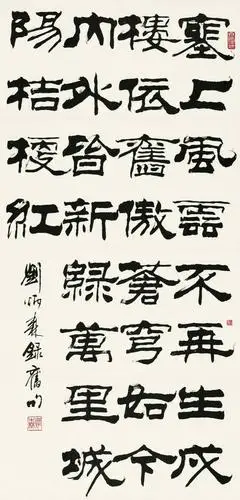 塞上風雲不再生戍
樓依舊傲蒼穹如今
内外皆新綠萬里城
陽桔梗紅
劉炳森錄舊句